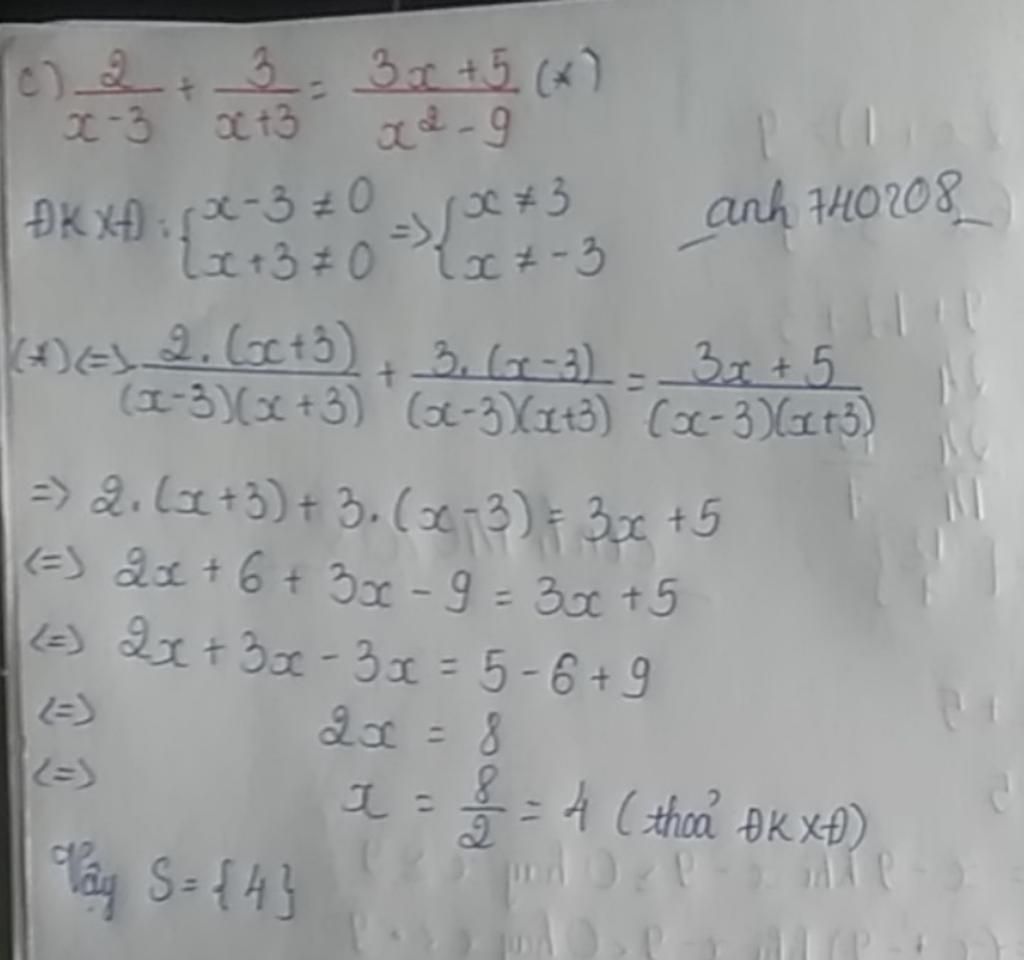 c) 2/(x-3) + 3/(x+3) = (3x+5)/(x²-9) (*)
ĐKXĐ: {x-3≠0 => {x≠3
{x+3≠0 {x≠-3
anh 740208
(*) <=> 2.(x+3)/((x-3)(x+3)) + 3.(x-3)/((x-3)(x+3)) = (3x+5)/((x-3)(x+3))
=> 2.(x+3) + 3.(x-3) = 3x+5
<=> 2x+6+3x-9 = 3x+5
<=> 2x+3x-3x = 5-6+9
<=> 2x = 8
<=> x = 8/2 = 4 (thoả ĐKXĐ)
Vậy S={4}